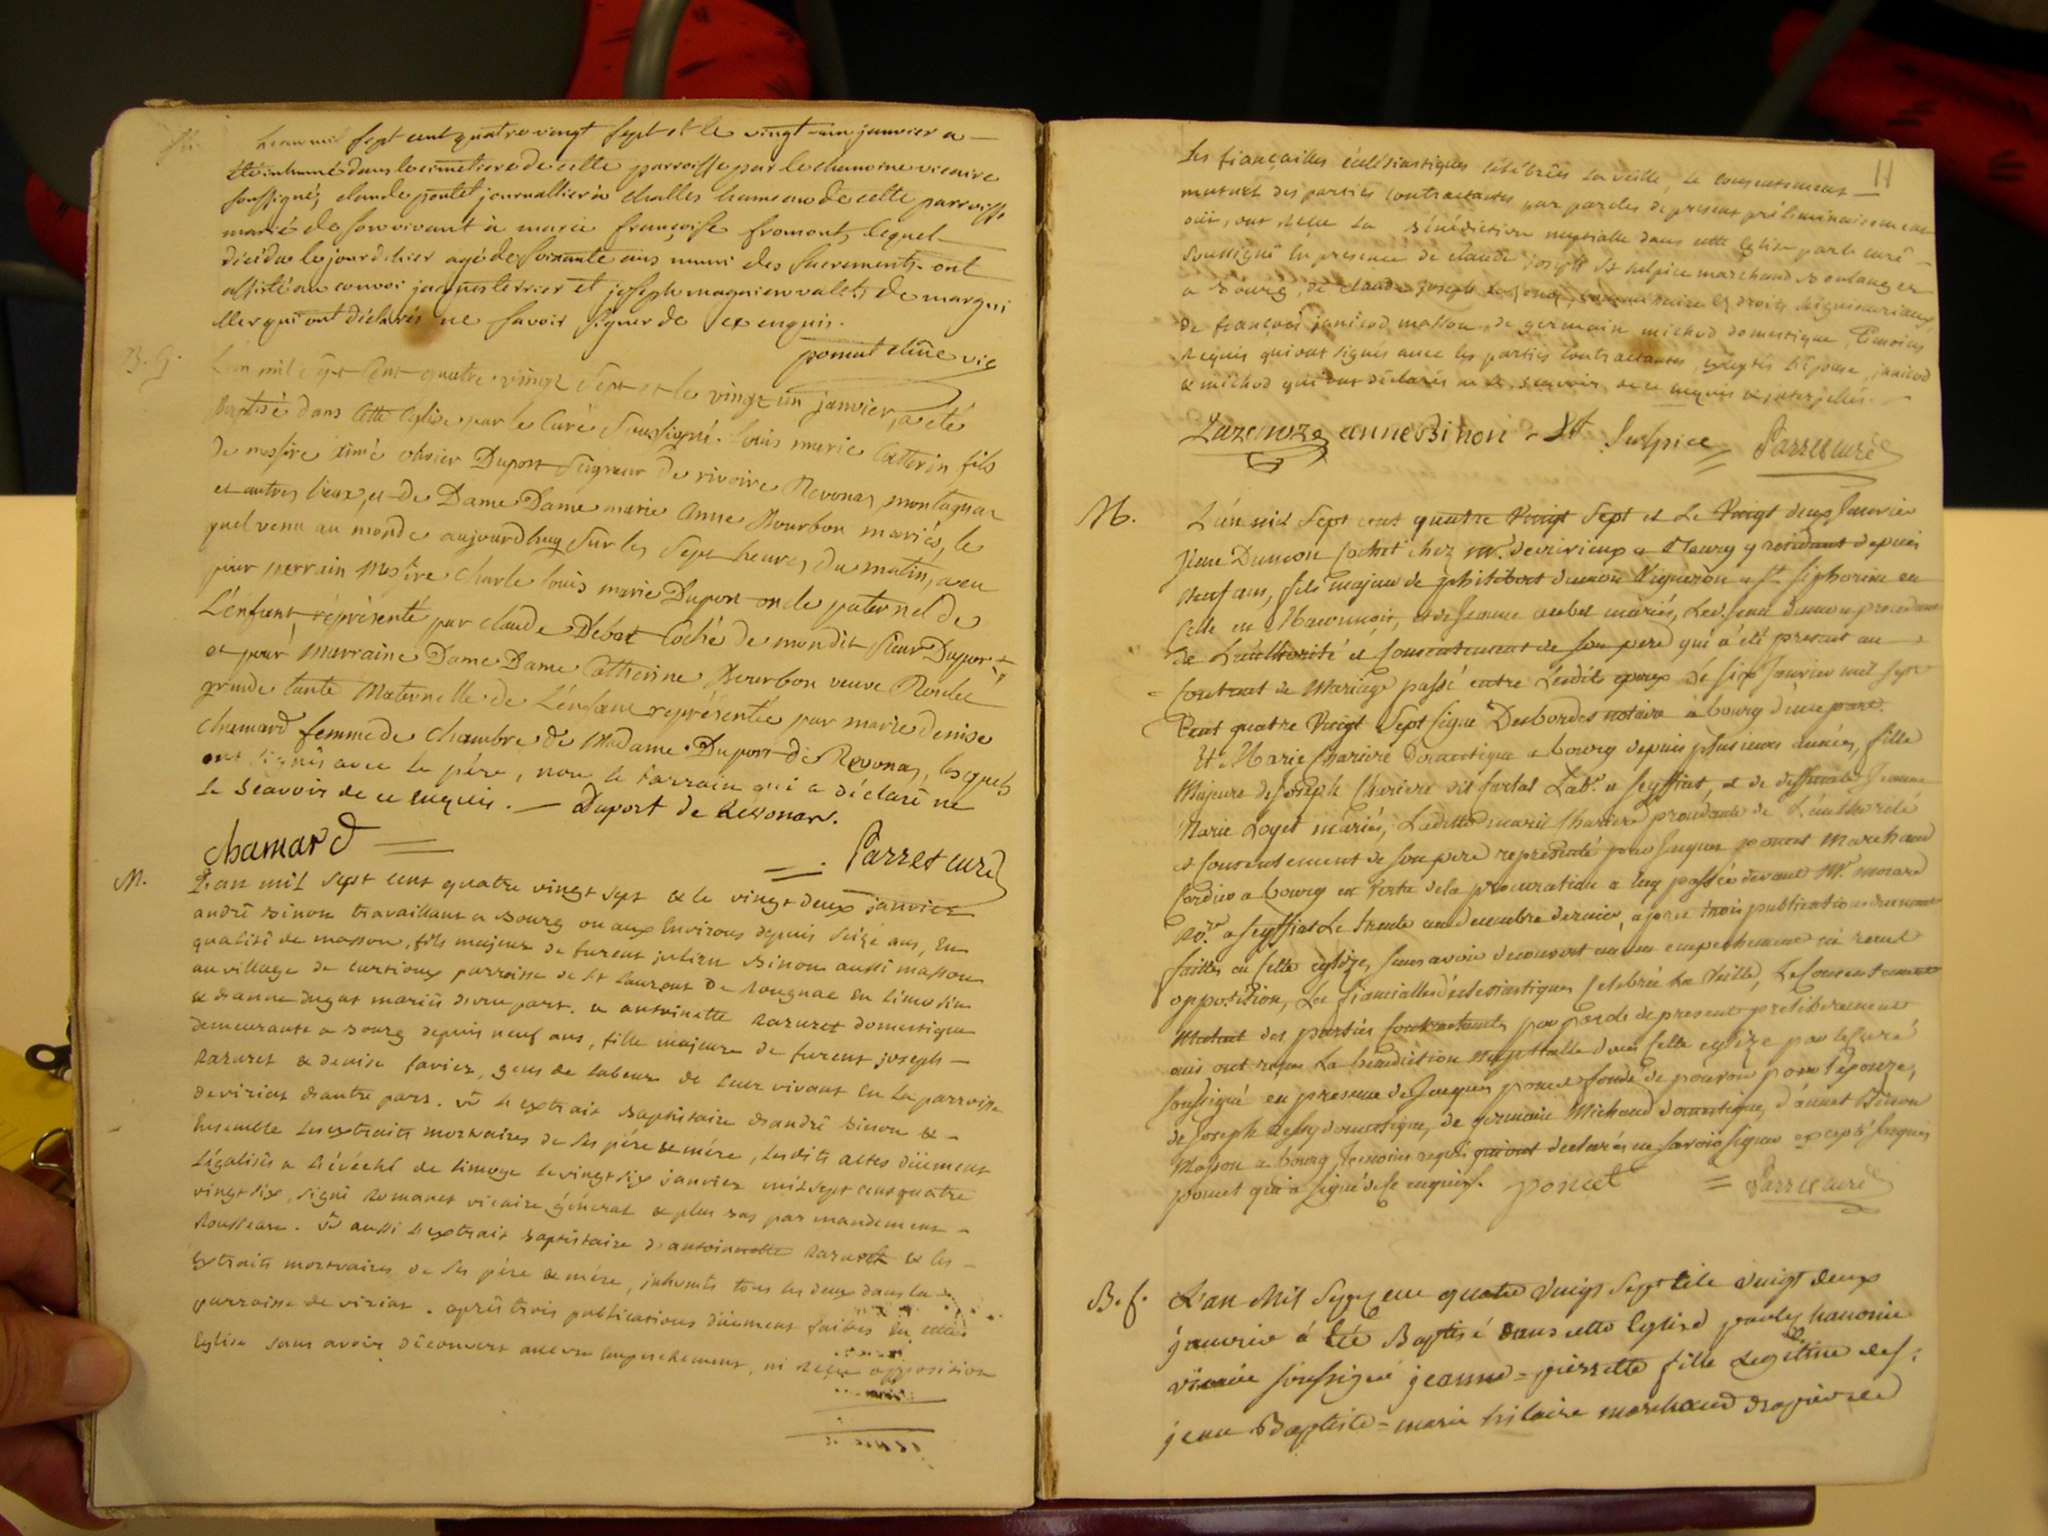 L'an mil sept cent quatre vingt sept et le vingt-un janvier a
été inhumé dans le cimetiere de cette parroisse par le chanoine vicaire
soussigné, claude pontet journallier à challes hameau de cette parroisse
marié de son vivant à marie françoise fromont, lequel
décéda le jour d'hier agé de soixante ans muni des sacrements. ont
assisté au convoi jacques terrier et joseph magnien valets de margui
llier qui ont déclarés ne savoir signer de ce enquis.
vic
B. G.
L'an mil sept Cent quatre-vingt Sept et le vingt un janvier, a été
Baptisé dans Cette Eglise par le Curé Soussigné. louis marie Catterin fils
de messire aimé olivier Duport Seigneur de rivoire Revonas, montagnat
et autres lieux, et de Dame Dame marie Anne Bourbon mariés, le
quel venu au monde aujourdhuy sur les Sept heures du matin, a eu
pour perrain Messire Charle louis marie Duport oncle paternel de
L'énfant représenté par claude Debat Coché de mondit Sieur Duport
et pour Marraine Dame Dame Catherine Bourbon veuve
grande tante Maternelle de L'énfant représentée par marie denise
chamard femme de chambre de Madame Duport de Revonas, lesquels
ont signés avec le père, non le Parrain qui a déclaré ne
le sçavoir de ce enquis. — Duport de Revonas.
chamard Parret curé
M.
L'an mil sept cent quatre vingt sept & le vingt deux janvier
andré Binon travaillant a Bourg ou aux Environs depuis seize ans, En
qualité de masson, fils majeur de furent julien Binon aussi masson
au village de curtioux parroisse de St laurent De en limosin
& d'anne dugat mariés d'une part. & antoinette Razuret domestique
demeurante a Bourg depuis neuf ans, fille majeure de furent joseph
Razuret & denise favier, gens de labeur de leur vivant En la parroisse
de viriat d'autre part. vu l'extrait Baptistaire d'andré Binon &
Ensemble les extraits mortuaires de ses père & mère, lesdits actes düement
Légalisés a L'évéché de limoge le vingt six janvier mil sept cent quatre
vingt six, signé Romanet vicaire général & plus bas par mandement
Rousseau. vu aussi l'extrait Baptistaire d'antoinette Razuret & les
Extraits mortuaires de ses père & mère, inhumés tous les deux dans la
parroisse de viriat. aprés trois publications düement faites En cette
Eglise sans avoir découvert aucun empechement, ni reçu opposition
11
Les fiançailles écclésiastiques célébrées la veille, le consentement
mutuel des parties contractantes par paroles de present préliminairement
oüi, ont reçu la Bénédiction nuptialle dans cette Eglise par le curé
soussigné En présence de claude joseph St sulpice marchand Boulanger
a Bourg, de claude joseph commissaire Es droits seigneuriaux,
de françois janicod masson, de germain michod domestique, Témoins
Requis qui ont signés avec les parties contractantes, exceptés L'Epouse, janicod
& michod qui ont déclarés ne le sçavoir de ce enquis & interpellés.
anne Binon St Sulpice Parret curé
M.
L'an mil Sept cent quatre Vingt Sept et Le Vingt deux Janvier
Jean Dumon Cochet chez Mr. devirieux a Bourg y residant depuis
neuf ans, fils majeur de philibert dumon Vigneron a St. Siphorien en
Celle en Maconnois, et de Jeanne aubet mariés, Led. Jean dumon procedant
de L'authorité et Consentement de Son pere qui a été present au
Contrat de Mariage passé entre Lesdits epoux Le six Janvier mil Sept
Cent quatre Vingt Sept signé Desbordes notaire a bourg d'une part.
Et Marie Chariere domestique a bourg depuis plusieurs années, fille
Majeure de Joseph Chariere dit Carlat Labr. a Seyssiat, et de deffunte Jeanne
Marie Loyet mariés, Laditte marie Chariere procédante de L'authorité
et Consentement de Son pere representé par Jaques poncet Marchand
Cordier a bourg en vertu de la procuration a luy passée devant Mr. morard
No.re a Seyssiat Le trente un decembre dernier, apres trois publications düement
faittes en Cette eglize, Sans avoir decouvert aucun empechement ni reçu
opposition, Les fiancialles écclesiastiques Celebrées La Veille, Le Consentement
Mutuel des parties Contractantes par parole de present preliberement
ouis ont reçu La benediction Nuptialle dans Cette eglize par le Curé
soussigné en presence de Jaques poncet fondé de pouvoir pour l'épouze,
de Joseph domestique, de germain Michaud domestique, d'annet Binon
Masson a bourg Temoins requis qui ont declarés ne Savoir Signer excepté Jaques
poncet qui a signé de Ce enquis. poncet Parret curé
B. f.
L'an Mil Sept Cent quatre Vingt Sept & le vingt deux
janvier à Eté Baptisé dans cette Eglise par le chanoine
vicaire soussigné jeanne-pierrette fille Legitime de
jean Baptiste-marie hilaire marchand drapier de